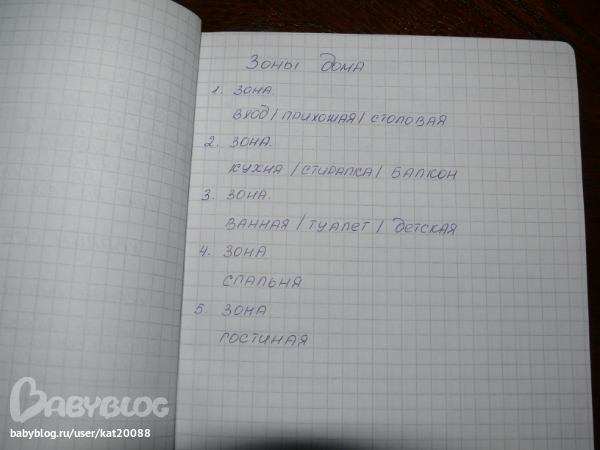 Зоны дома
1. зона
вход / прихожая / столовая
2. зона.
кухня / стиралка / балкон
3. зона.
ванная / туалет / детская
4. зона
спальня
5. зона
гостиная
BABYBLOG
babyblog.ru/user/kat20088